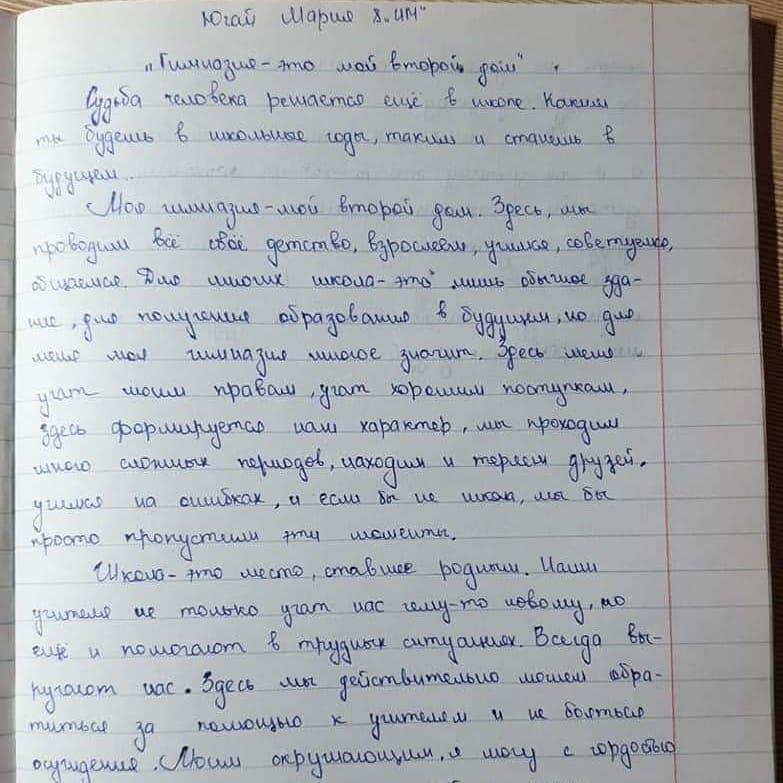 Югай Мария 8 „ИМ"
„Гимназия - это мой второй дом".
Судьба человека решается ещё в школе. Каким
ты будешь в школьные годы, таким и станешь в
будущем.
Моя гимназия - мой второй дом. Здесь, мы
проводим всё своё детство, взрослеем, учимся, советуемся,
общаемся. Для многих школа - это лишь обычное зда-
ние, для получения образования в будущем, но для
меня моя гимназия многое значит. Здесь меня
учат моим правам, учат хорошим поступкам,
здесь формируется наш характер, мы проходим
много сложных периодов, находим и теряем друзей,
учимся на ошибках, и если бы не школа, мы бы
просто пропустили эти моменты.
Школа - это место, ставшее родным. Наши
учителя не только учат нас чему-то новому, но
ещё и помогают в трудных ситуациях. Всегда вы-
ручают нас. Здесь мы действительно можем обра-
титься за помощью к учителям и не бояться
осуждения. Моим окружающим, я могу с гордостью